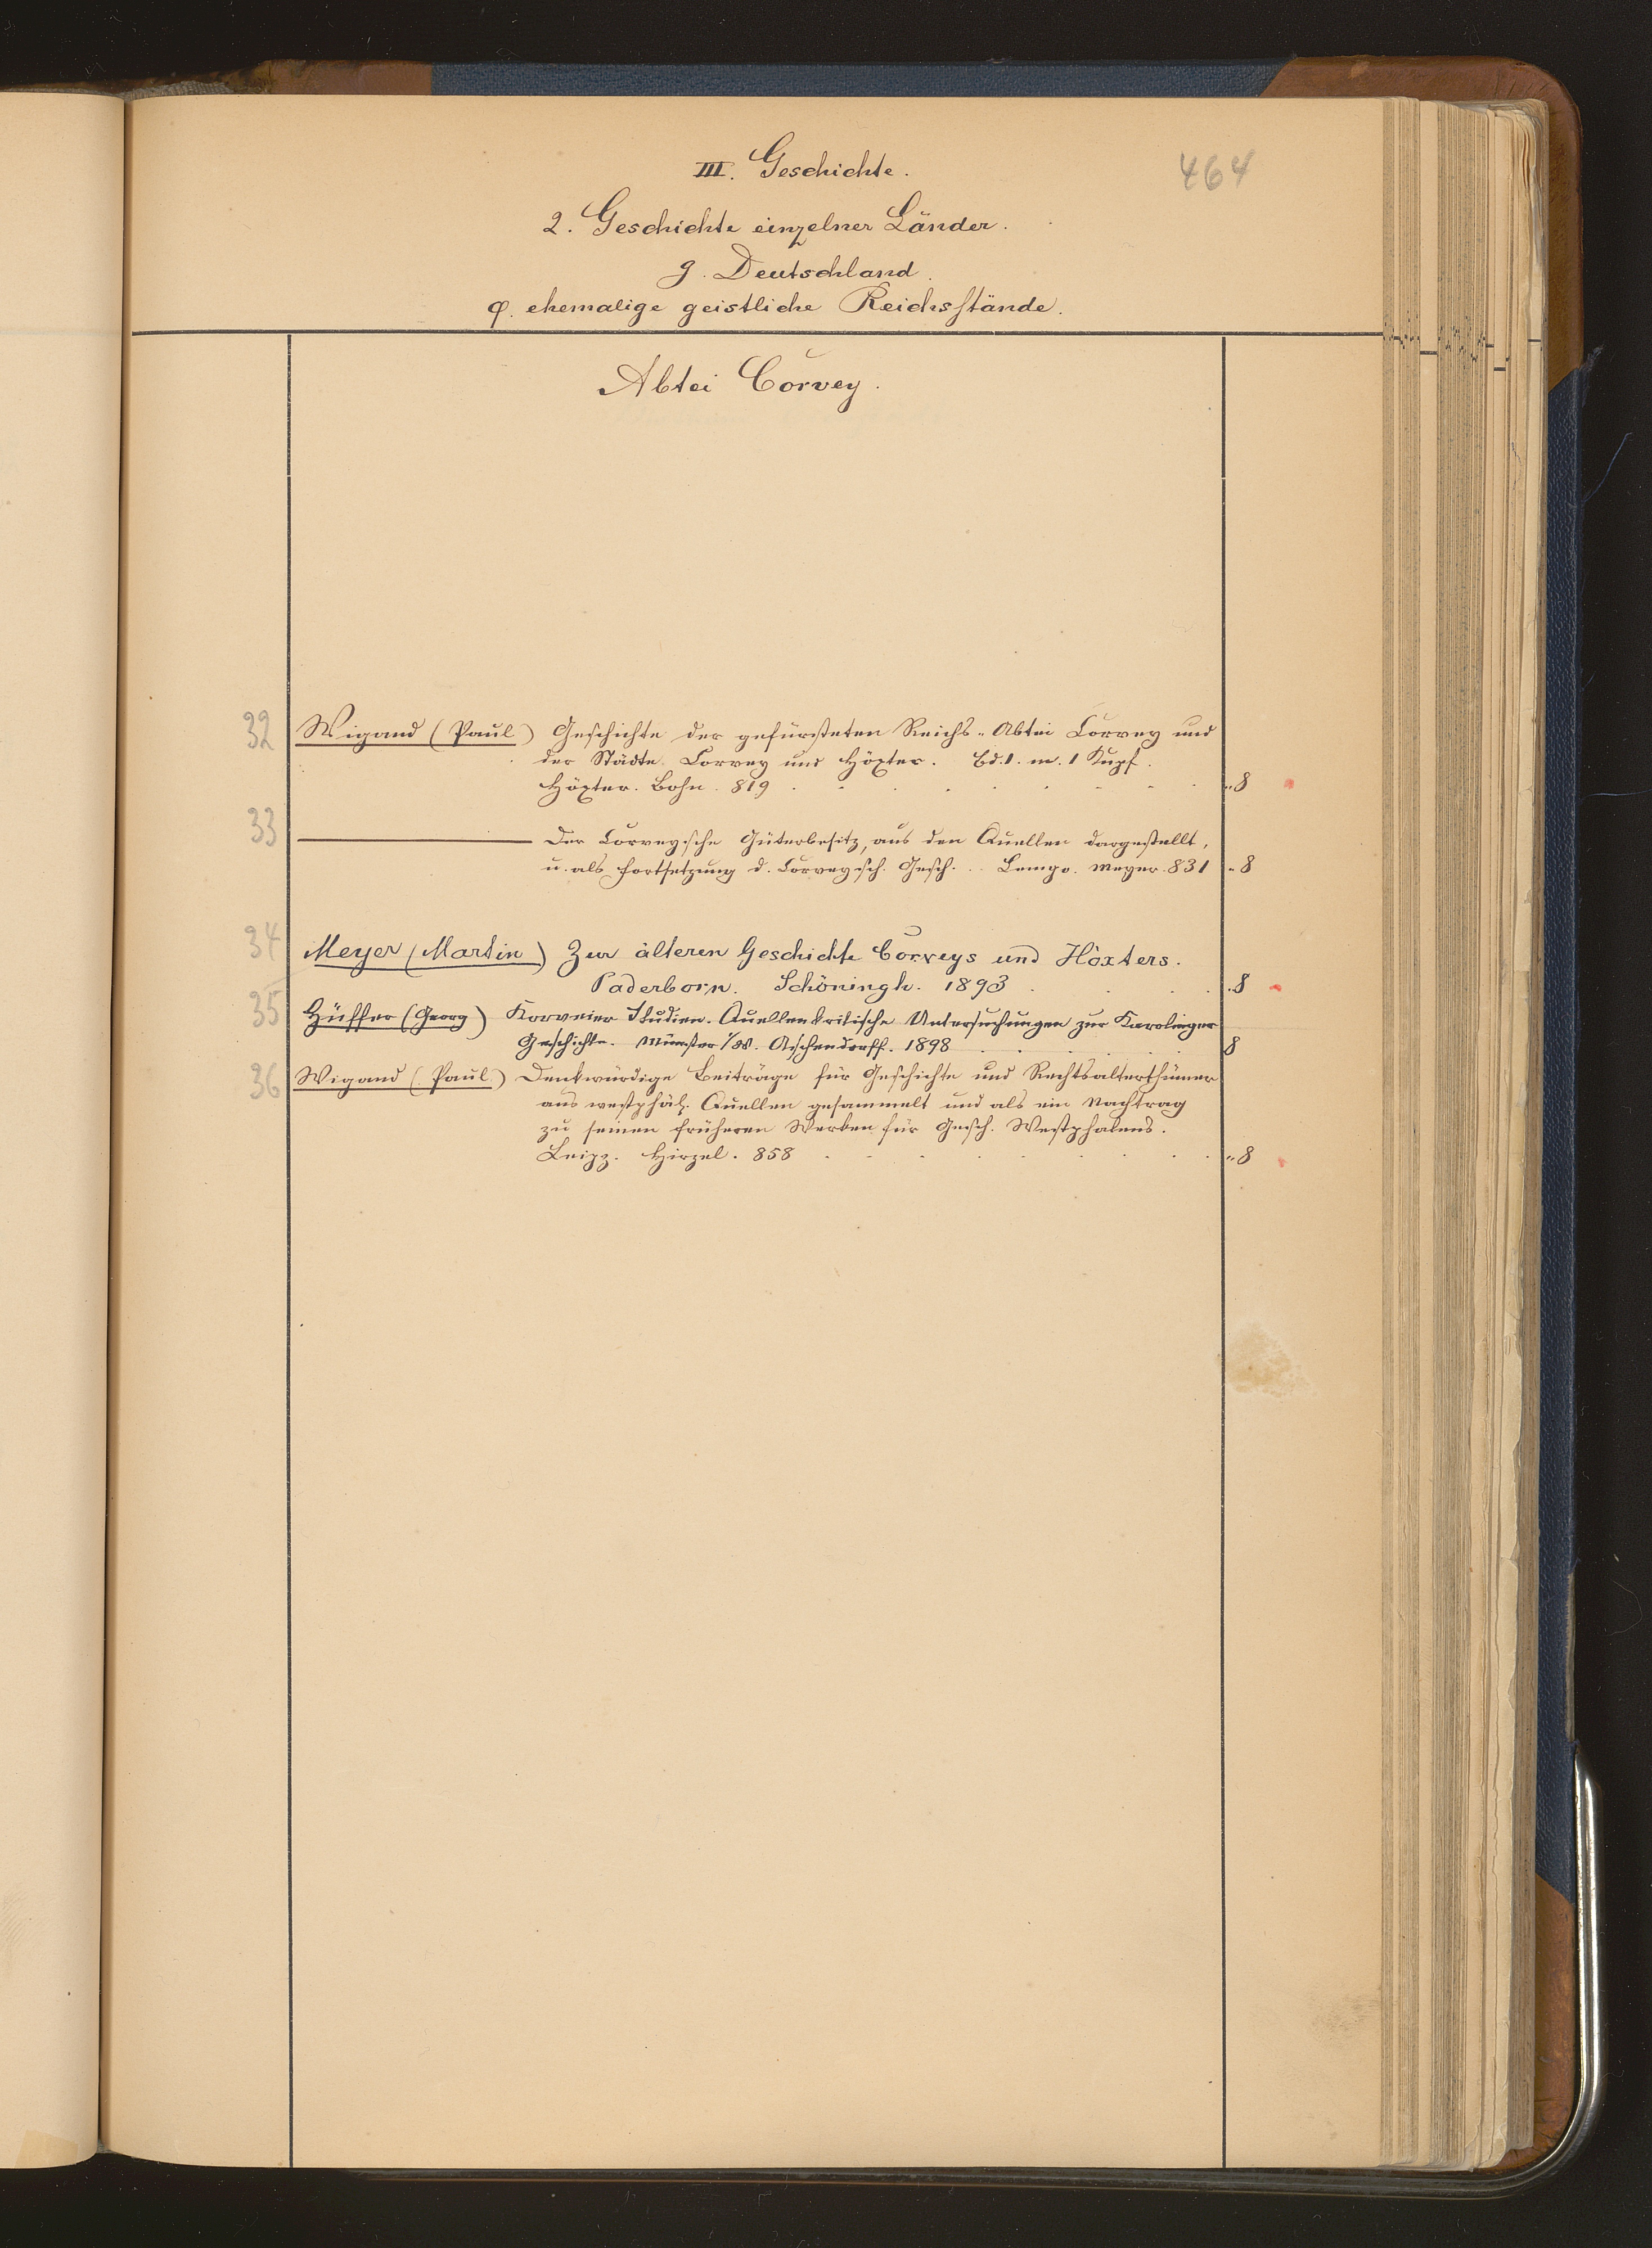 464
III. Geschichte.
2. Geschichte einzelner Länder.
g. Deutschland.
φ. ehemalige geistliche Reichsstände.
Abtei Corvey.
32 Wigand (Paul) Geschichte der gefürsteten Reichs-Abtei Corvey und
der Städte Corvey und Höxter. Bd. 1. m. 1 Kupf.
Höxter. Bohn. 819 . . . . . . . . „8
33 ——— Der Corvey'sche Güterbesitz, aus den Quellen dargestellt,
u. als Fortsetzung d. Corvey'sch. Gesch. .. Lemgo. Meyer. 831 „8
34 Meyer (Martin) Zur älteren Geschichte Corveys und Höxters.
Paderborn. Schöningh. 1893 . . . . 8
35 Hüffer (Georg) Korveier Studien. Quellenkritische Untersuchungen zur Karolinger
Geschichte. Münster i/W. Aschendorff. 1898 . . . . . . 8
36 Wigand (Paul) Denkwürdige Beiträge für Geschichte und Rechtsalterthümer
aus westphäl. Quellen gesammelt und als ein Nachtrag
zu seinen früheren Werken für Gesch. Westphalens.
Leipz. Hirzel. 858 . . . . . . . . „8